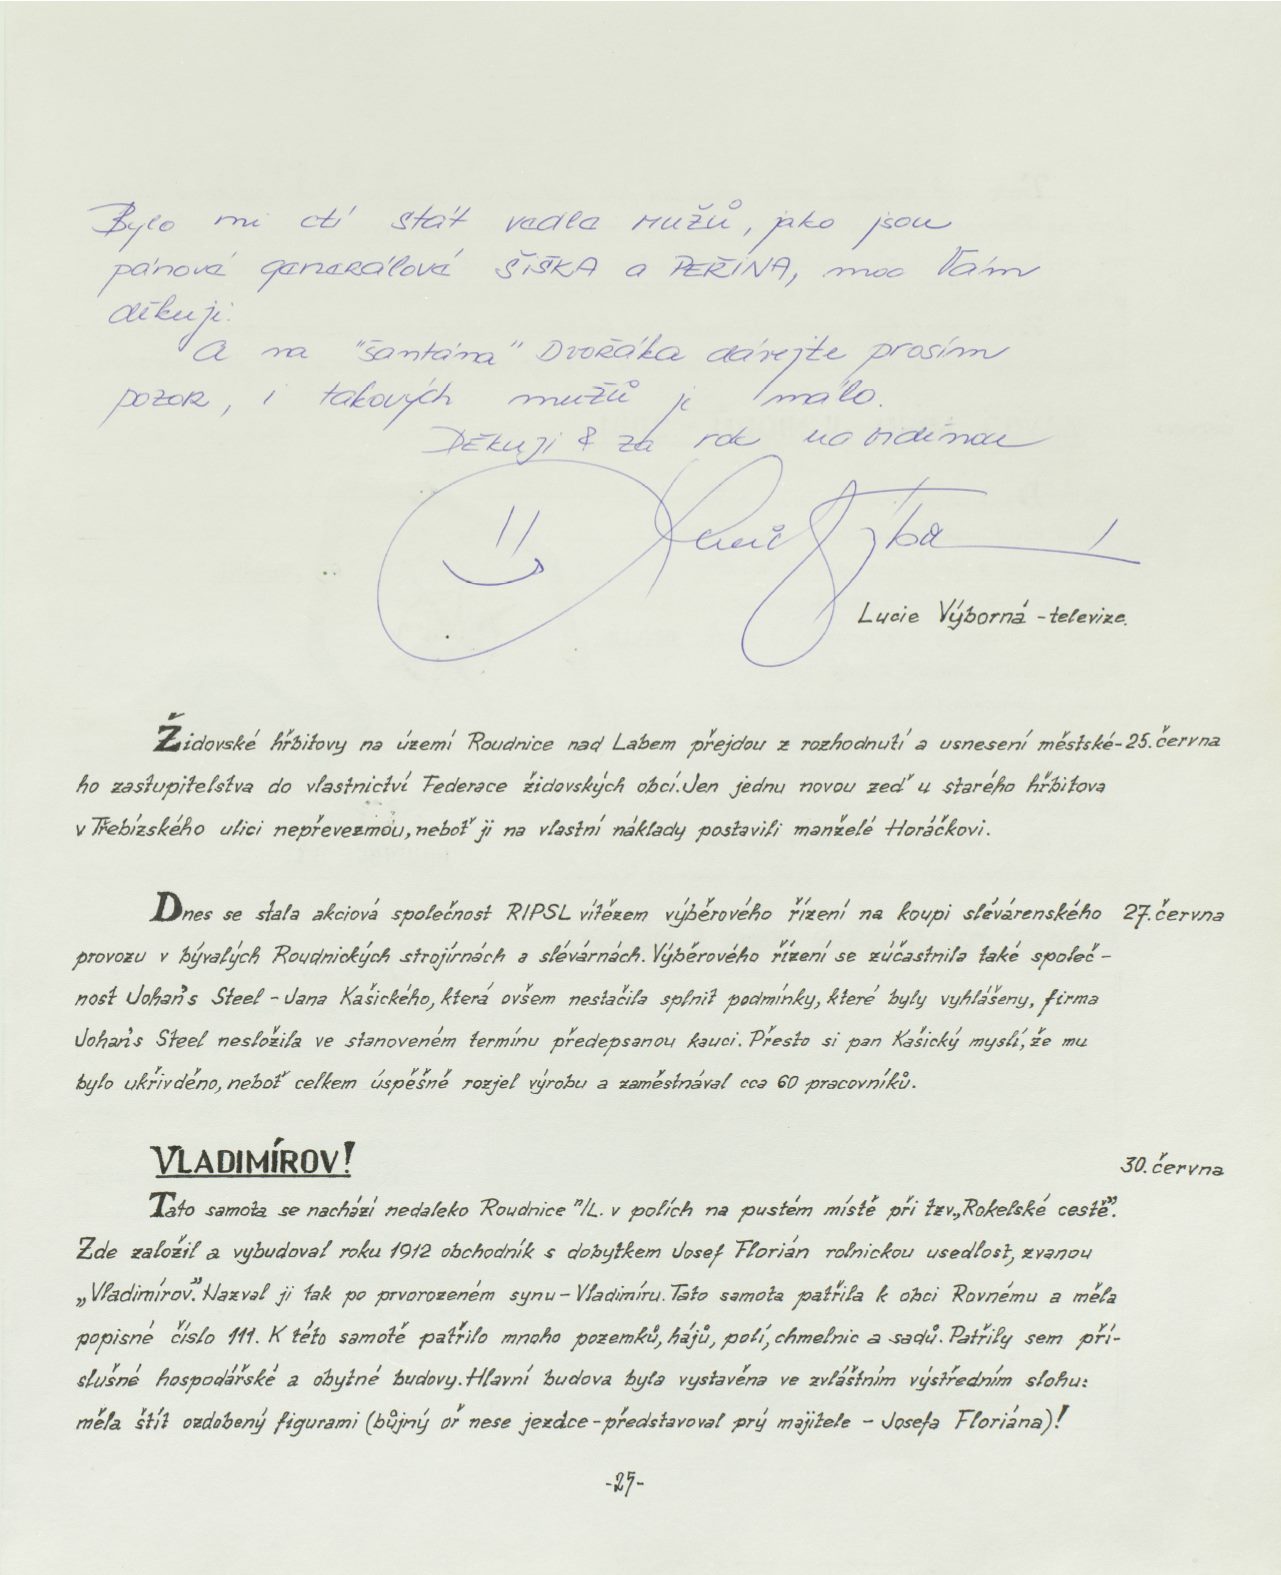 Bylo mi ctí stát vedle mužů, jako jsou
pánové generálové ŠIŠKA a PEŘINA, moc Vám
děkuji.
A na "šantána" Dvořáka dávejte prosím
pozor, i takových mužů je málo.
Děkuji & za rok na viděnou
Lucie Výborná - televize.
Židovské hřbitovy na území Roudnice nad Labem přejdou z rozhodnutí a usnesení městské- 25. června
ho zastupitelstva do vlastnictví Federace židovských obcí. Jen jednu novou zeď u starého hřbitova
v Třebízského ulici nepřevezmou, neboť ji na vlastní náklady postavili manželé Horáčkovi.
Dnes se stala akciová společnost RIPSL vítězem výběrového řízení na koupi slévárenského 27. června
provozu v bývalých Roudnických strojírnách a slévárnách. Výběrového řízení se zúčastnila také společ-
nost Johan's Steel - Jana Kašického, která ovšem nestačila splnit podmínky, které byly vyhlášeny, firma
Johan's Steel nesložila ve stanoveném termínu předepsanou kauci. Přesto si pan Kašický myslí, že mu
bylo ukřivděno, neboť celkem úspěšně rozjel výrobu a zaměstnával cca 60 pracovníků.
VLADIMÍROV! 30. června
Tato samota se nachází nedaleko Roudnice n/L. v polích na pustém místě při tzv. „Rokelské cestě".
Zde založil a vybudoval roku 1912 obchodník s dobytkem Josef Florián rolnickou usedlost, zvanou
„Vladimírov". Nazval ji tak po prvorozeném synu - Vladimíru. Tato samota patřila k obci Rovnému a měla
popisné číslo 111. K této samotě patřilo mnoho pozemků, hájů, polí, chmelnic a sadů. Patřily sem pří-
slušné hospodářské a obytné budovy. Hlavní budova byla vystavěna ve zvláštním výstředním slohu:
měla štít ozdobený figurami (bůjný oř nese jezdce - představoval prý majitele - Josefa Floriána)!
-25-